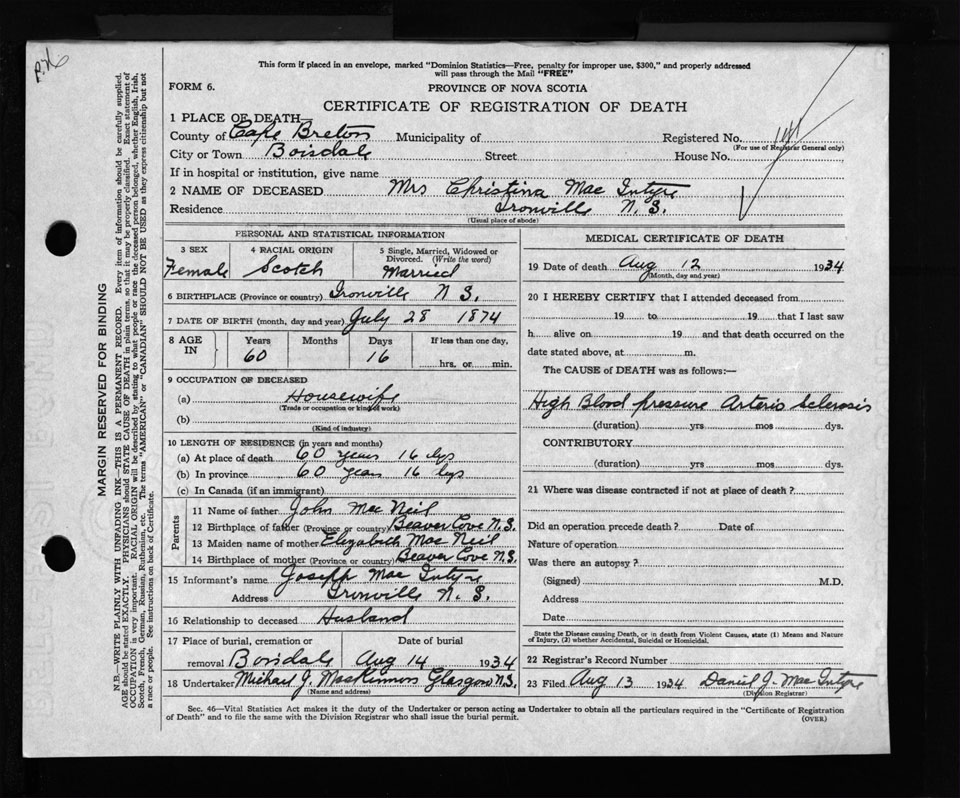 This form if placed in an envelope, marked "Dominion Statistics—Free, penalty for improper use, $300," and properly addressed
will pass through the Mail "FREE"
FORM 6.
PROVINCE OF NOVA SCOTIA
CERTIFICATE OF REGISTRATION OF DEATH
1 PLACE OF DEATH—
County of Cape Breton Municipality of Registered No.
(For use of Registrar General only)
City or Town Boisdale Street House No.
If in hospital or institution, give name
2 NAME OF DECEASED Mrs Christina Mac Intyre
Residence Ironville N. S.
(Usual place of abode)
PERSONAL AND STATISTICAL INFORMATION
3 SEX 4 RACIAL ORIGIN 5 Single, Married, Widowed or
Divorced. (Write the word)
Female Scotch Married
6 BIRTHPLACE (Province or country) Ironville N S.
7 DATE OF BIRTH (month, day and year) July 28 1874
8 AGE IN Years Months Days If less than one day,
60 16 hrs. or min.
9 OCCUPATION OF DECEASED
(a) Housewife
(Trade or occupation or kind of work)
(b)
(Kind of industry)
10 LENGTH OF RESIDENCE (in years and months)
(a) At place of death 60 years 16 dys
(b) In province 60 years 16 dys
(c) In Canada (if an immigrant)
Parents
11 Name of father John Mac Neil
12 Birthplace of father (Province or country) Beaver Cove N.S.
13 Maiden name of mother Elizabeth Mac Neil
14 Birthplace of mother (Province or country) Beaver Cove N.S.
15 Informant's name Joseph Mac Intyre
Address Ironville N. S.
16 Relationship to deceased Husband
17 Place of burial, cremation or Date of burial
removal Boisdale Aug 14 1934
18 Undertaker Michael J. MacKinnon Glasgow N.S.
(Name and address)
MEDICAL CERTIFICATE OF DEATH
19 Date of death Aug 12 1934
(Month, day and year)
20 I HEREBY CERTIFY that I attended deceased from
19 to 19 that I last saw
h alive on 19 and that death occurred on the
date stated above, at m.
The CAUSE of DEATH was as follows:—
High Blood pressure Arterio Sclerosis
(duration) yrs mos dys.
CONTRIBUTORY
(duration) yrs mos dys.
21 Where was disease contracted if not at place of death?
Did an operation precede death? Date of
Nature of operation
Was there an autopsy?
(Signed) M.D.
Address
Date
State the Disease causing Death, or in death from Violent Causes, state (1) Means and Nature
of Injury, (2) whether Accidental, Suicidal or Homicidal.
22 Registrar's Record Number
23 Filed Aug 13 1934 Daniel J. Mac Intyre
(Division Registrar)
Sec. 46—Vital Statistics Act makes it the duty of the Undertaker or person acting as Undertaker to obtain all the particulars required in the "Certificate of Registration
of Death" and to file the same with the Division Registrar who shall issue the burial permit.
(OVER)
MARGIN RESERVED FOR BINDING
N.B.—WRITE PLAINLY WITH UNFADING INK—THIS IS A PERMANENT RECORD. Every item of information should be carefully supplied.
AGE should be stated EXACTLY. PHYSICIANS should STATE CAUSE OF DEATH in plain terms, so that it may be properly classified. Exact statement of
OCCUPATION is very important. RACIAL ORIGIN will be described by stating to what people or race the deceased person belonged, whether English, Irish,
Scotch, French, German, Russian, Ruthenian, etc. The terms "AMERICAN" or "CANADIAN" SHOULD NOT BE USED as they express citizenship but not
a race or people. See instructions on back of Certificate.